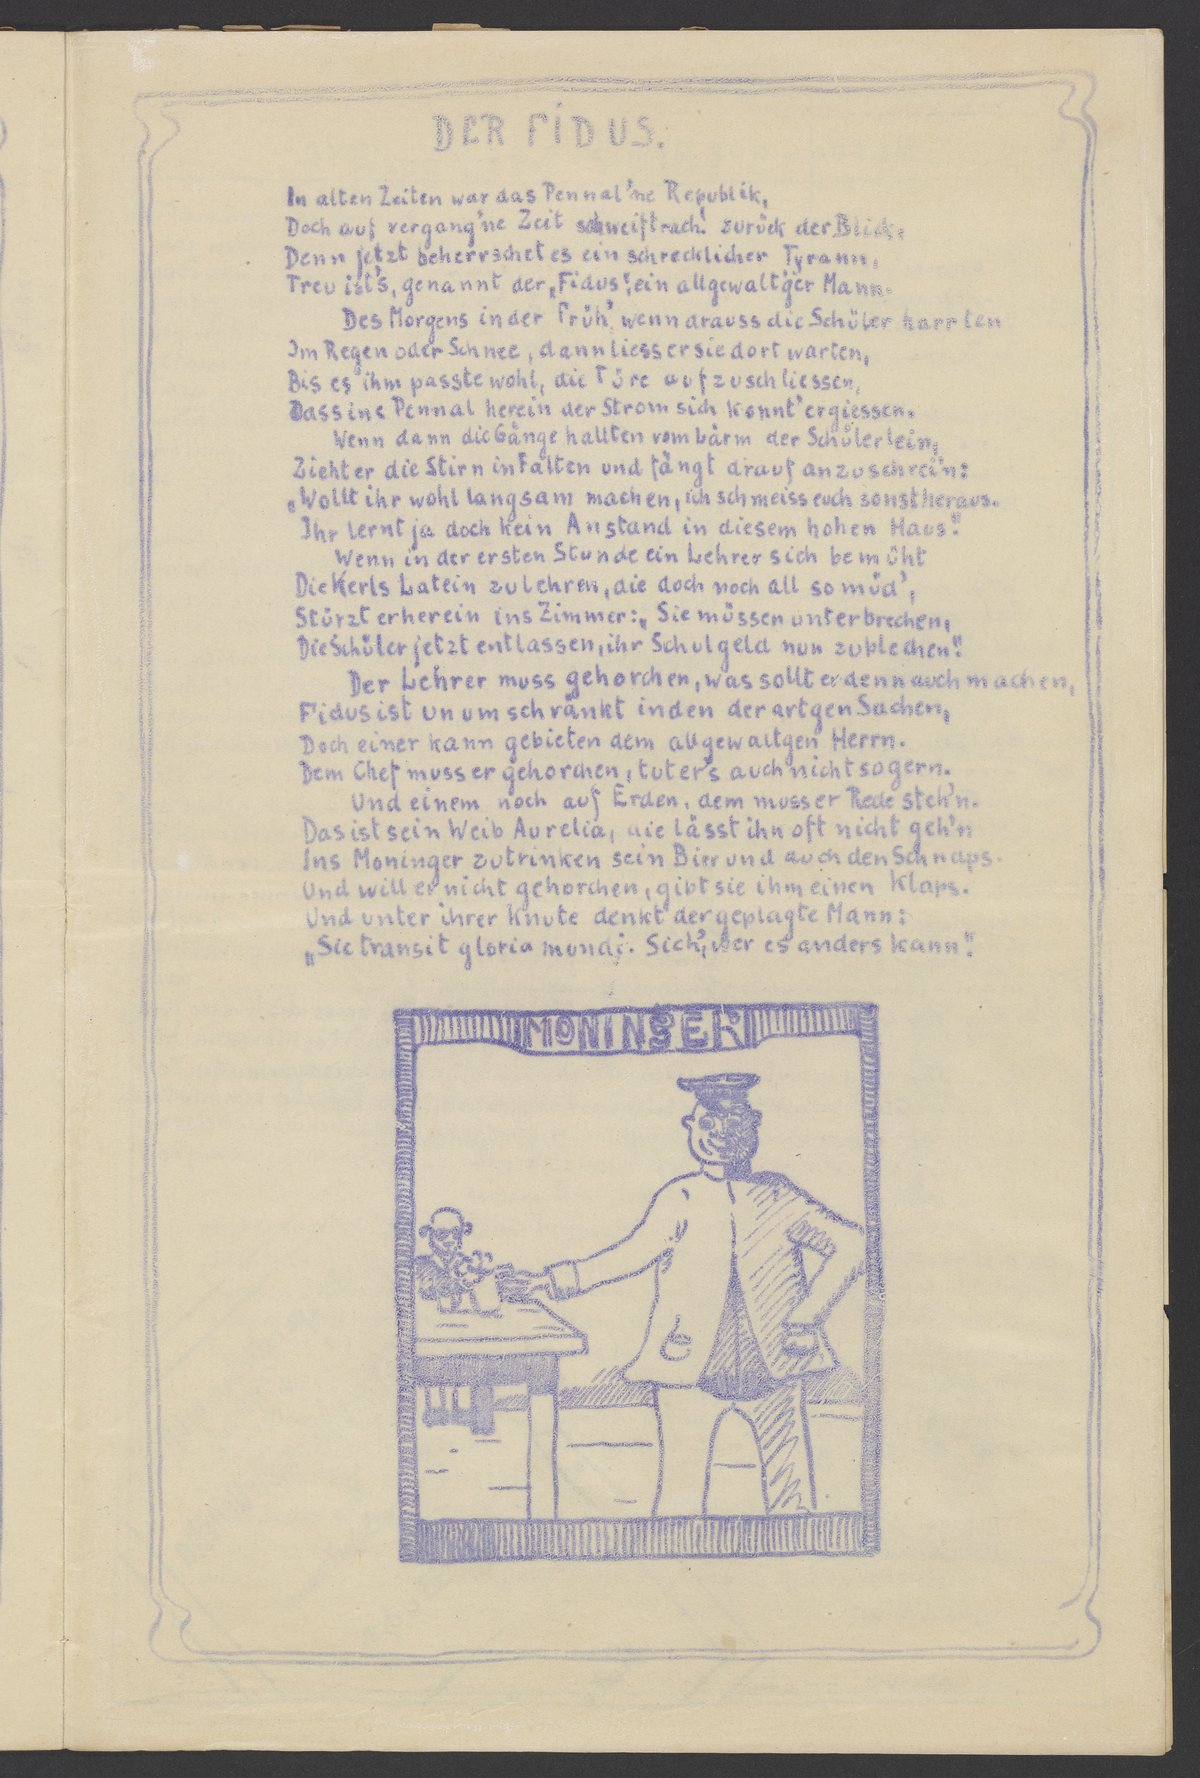 DER FIDUS.
In alten Zeiten war das Pennal 'ne Republik,
Doch auf vergang'ne Zeit schweift rach! zurück der Blick.
Denn jetzt beherrschet es ein schrecklicher Tyrann,
Treu ist's, genannt der „Fidus", ein allgewalt'ger Mann.
Des Morgens in der Früh', wenn drauss die Schüler harrten
Im Regen oder Schnee, dann liess er sie dort warten,
Bis es ihm passte wohl, die Türe aufzuschliessen,
Dass ins Pennal herein der Strom sich konnt' ergiessen.
Wenn dann die Gänge hallten vom Lärm der Schülerlein,
Zieht er die Stirn in Falten und fängt drauf an zu schrei'n:
„Wollt ihr wohl langsam machen, ich schmeiss euch sonst heraus.
Ihr lernt ja doch kein Anstand in diesem hohen Haus."
Wenn in der ersten Stunde ein Lehrer sich bemüht
Die Kerls Latein zu lehren, die doch noch all so müd',
Stürzt er herein ins Zimmer: „Sie müssen unterbrechen,
Die Schüler jetzt entlassen, ihr Schulgeld nun zu blechen."
Der Lehrer muss gehorchen, was sollt er denn auch machen,
Fidus ist unumschränkt in den derartgen Sachen,
Doch einer kann gebieten dem allgewaltgen Herrn.
Dem Chef muss er gehorchen, tut er's auch nicht so gern.
Und einem noch auf Erden, dem muss er Rede steh'n.
Das ist sein Weib Aurelia, die lässt ihn oft nicht geh'n
Ins Moninger zu trinken sein Bier und auch den Schnaps.
Und will er nicht gehorchen, gibt sie ihm einen Klaps.
Und unter ihrer Knute denkt der geplagte Mann:
„Sic transit gloria mundi. Sich', wer es anders kann".
MONINGER